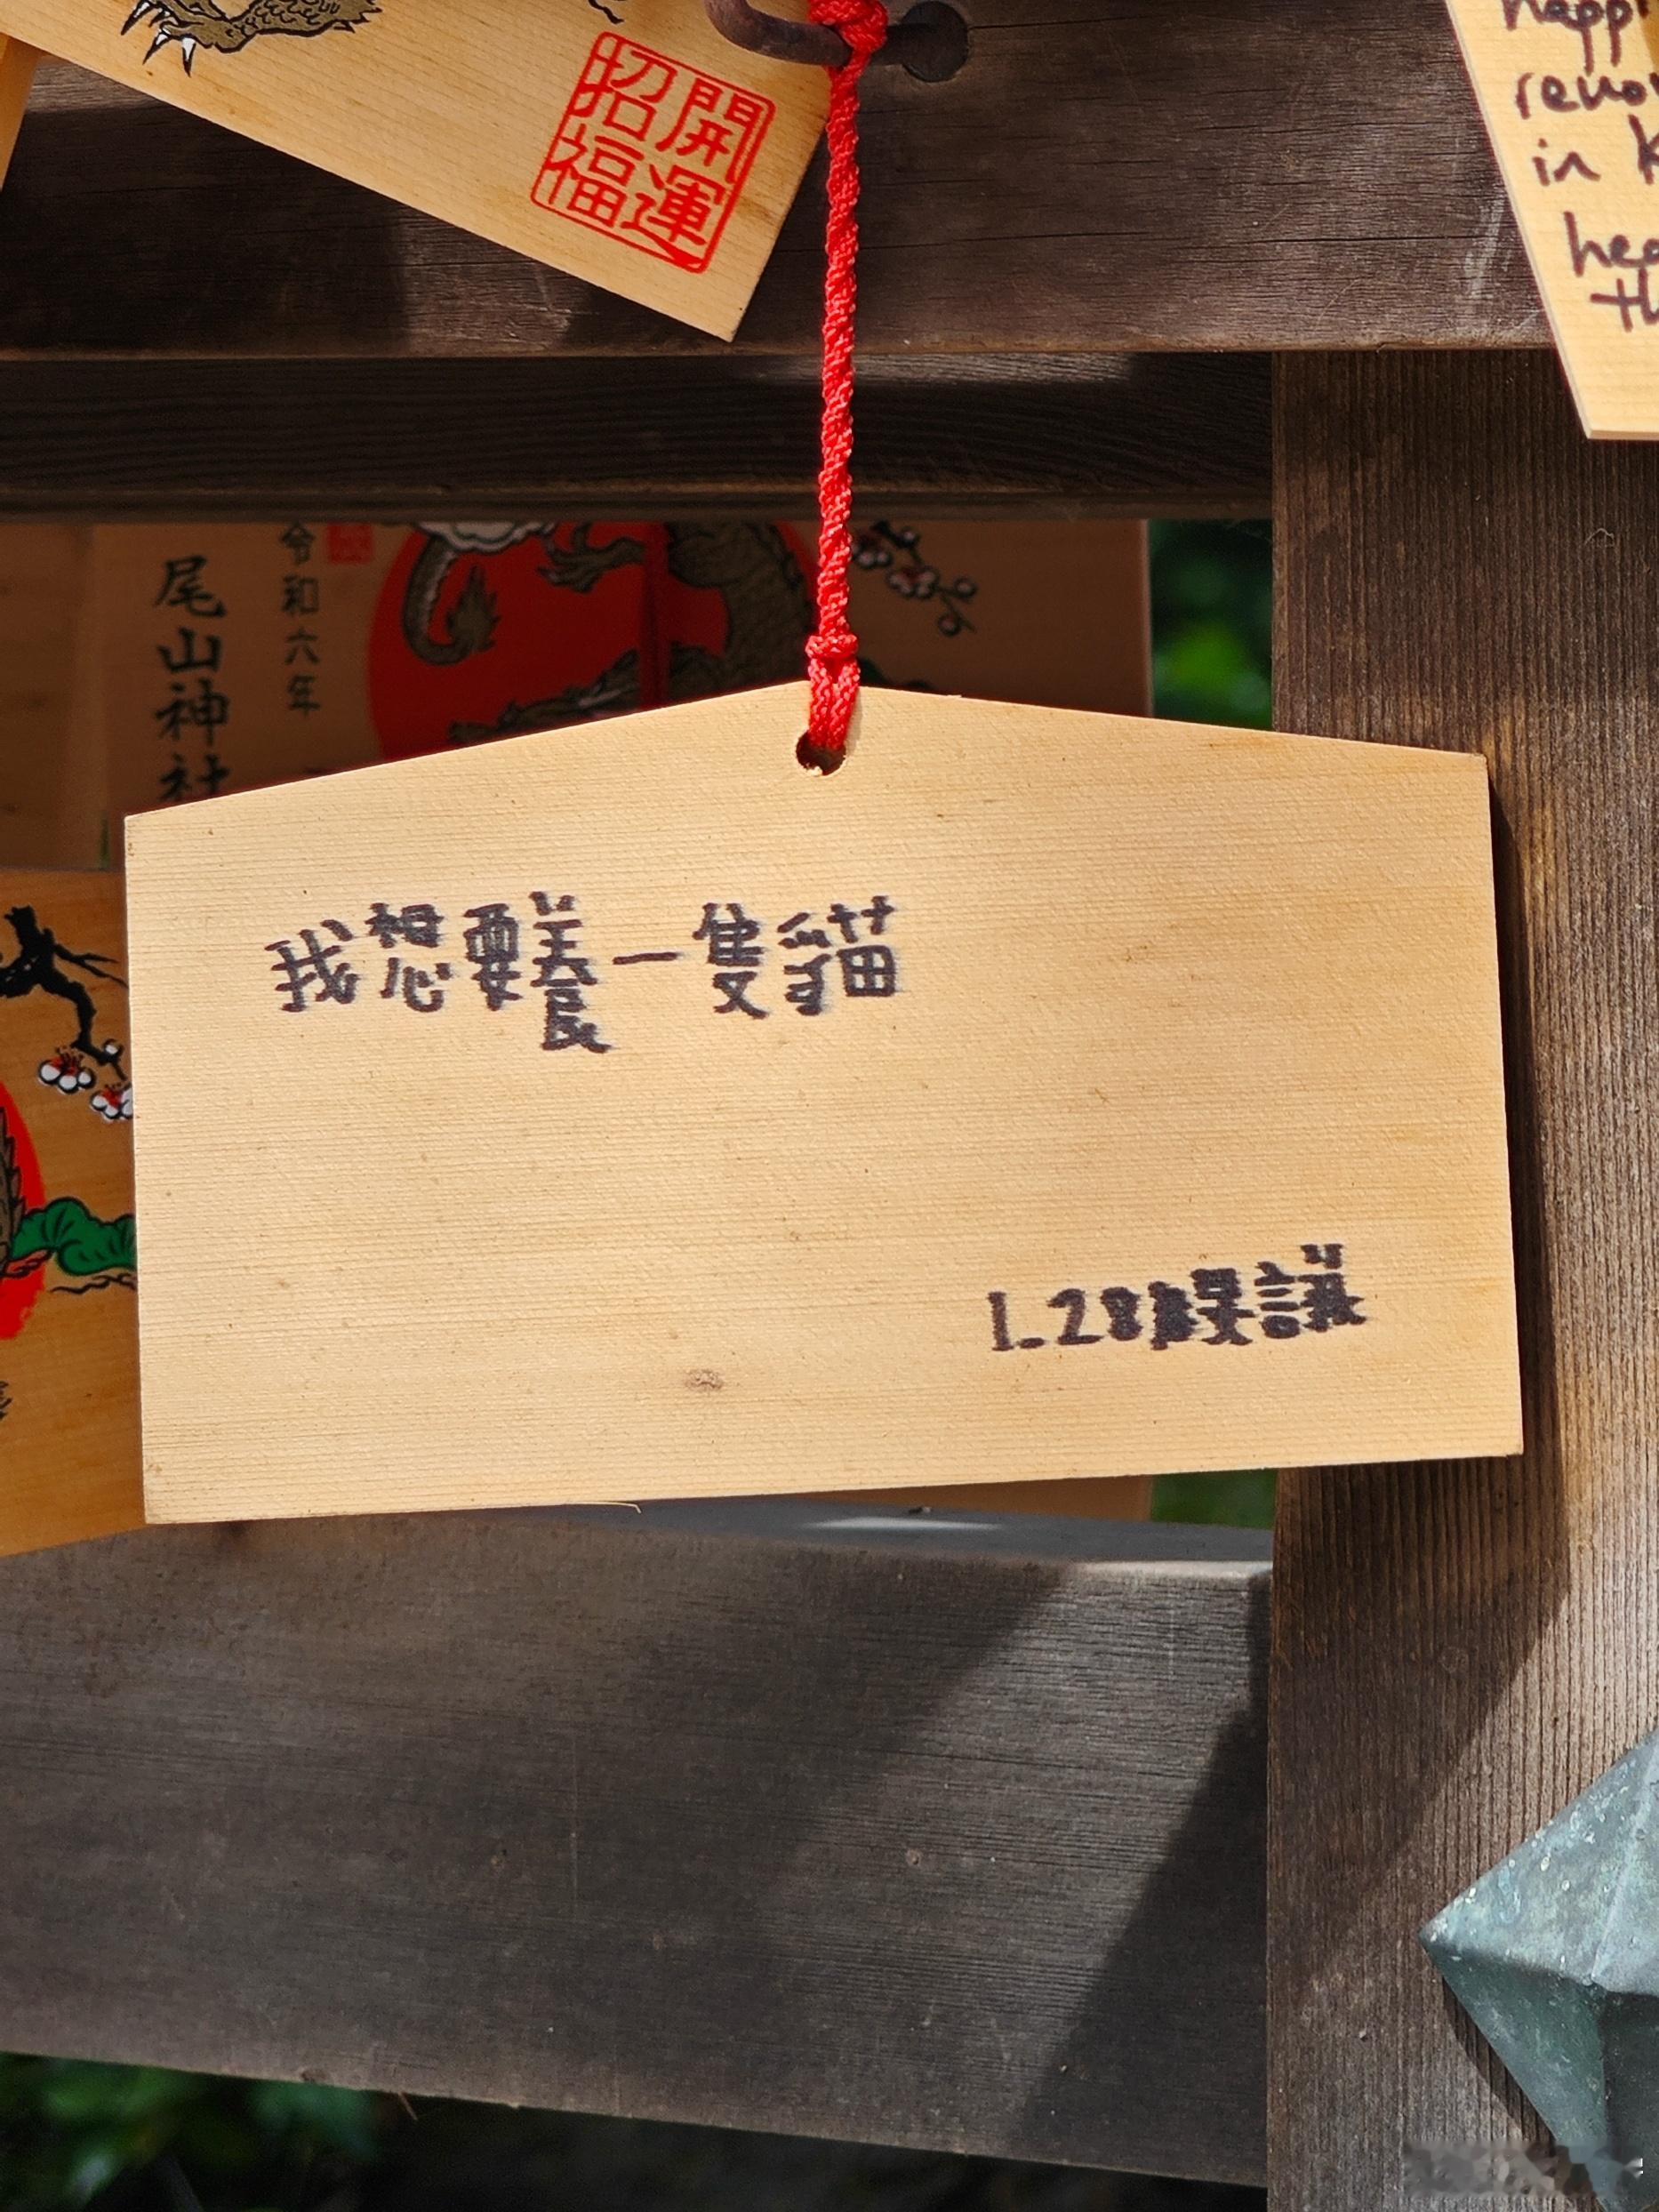 開運
招福
happi
in K
尾山神社
令和六年
我想要養一隻貓
1.28 議